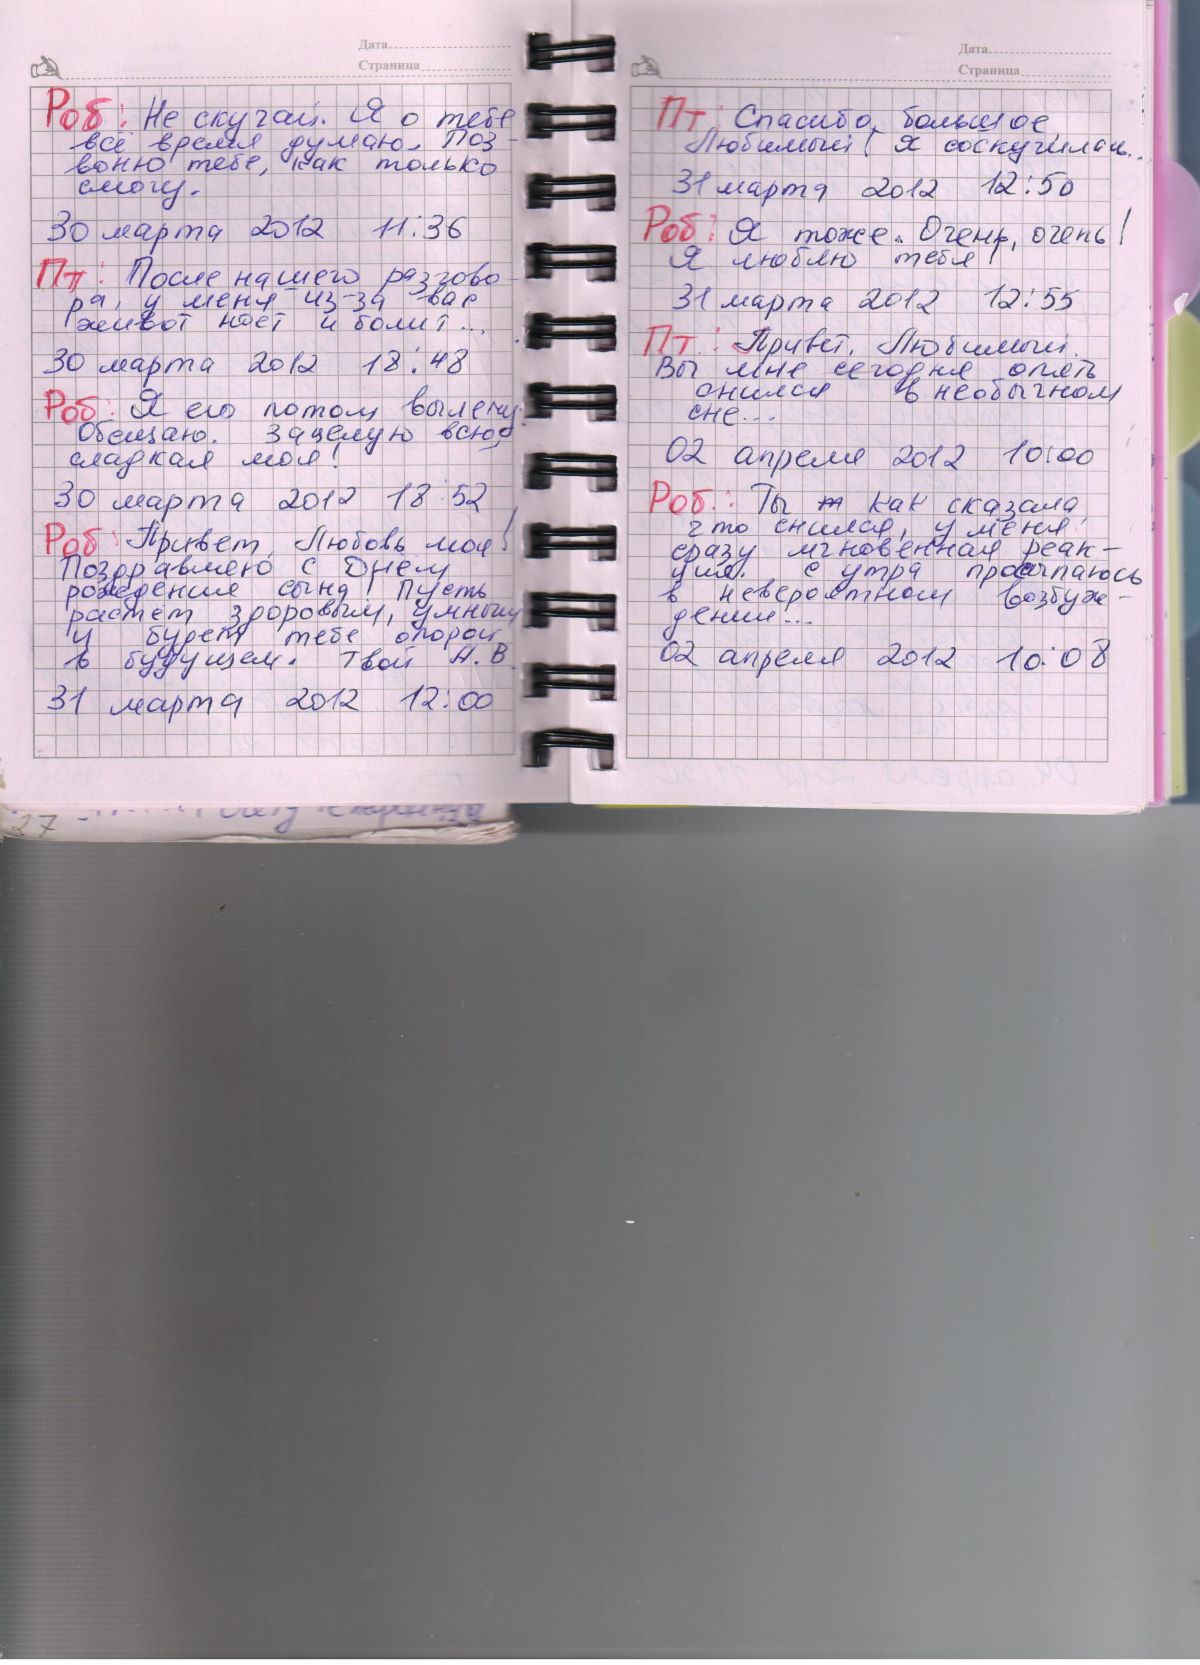 Дата
Страница
Роб: Не скучай. Я о тебе
всё время думаю. Поз-
воню тебе, как только
смогу.
30 марта 2012 11:36
Пт: После нашего разгово-
ра, у меня из-за вас
живот ноет и болит...
30 марта 2012 18:48
Роб: Я его потом вылечу.
Обещаю. Зацелую всю,
сладкая моя!
30 марта 2012 18:52
Роб: Привет, Любовь моя!
Поздравляю с Днем
рождения сына! Пусть
растет здоровым, умным
и будет тебе опорой
в будущем. Твой А.В.
31 марта 2012 12:00
27
Дата
Страница
Пт: Спасибо, большое
Любимый! Я соскучилась...
31 марта 2012 12:50
Роб: Я тоже. Очень, очень!
Я люблю тебя!
31 марта 2012 12:55
Пт: Привет, Любимый.
Вы мне сегодня опять
снился в необычном
сне...
02 апреля 2012 10:00
Роб: Ты как сказала
что снился, у меня
сразу мгновенная реак-
ция. С утра просыпаюсь
в невероятном возбуж-
дении...
02 апреля 2012 10:08